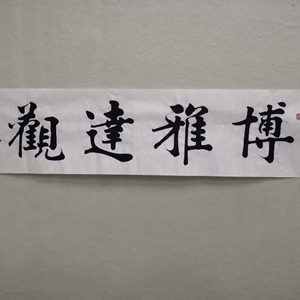 博雅達觀